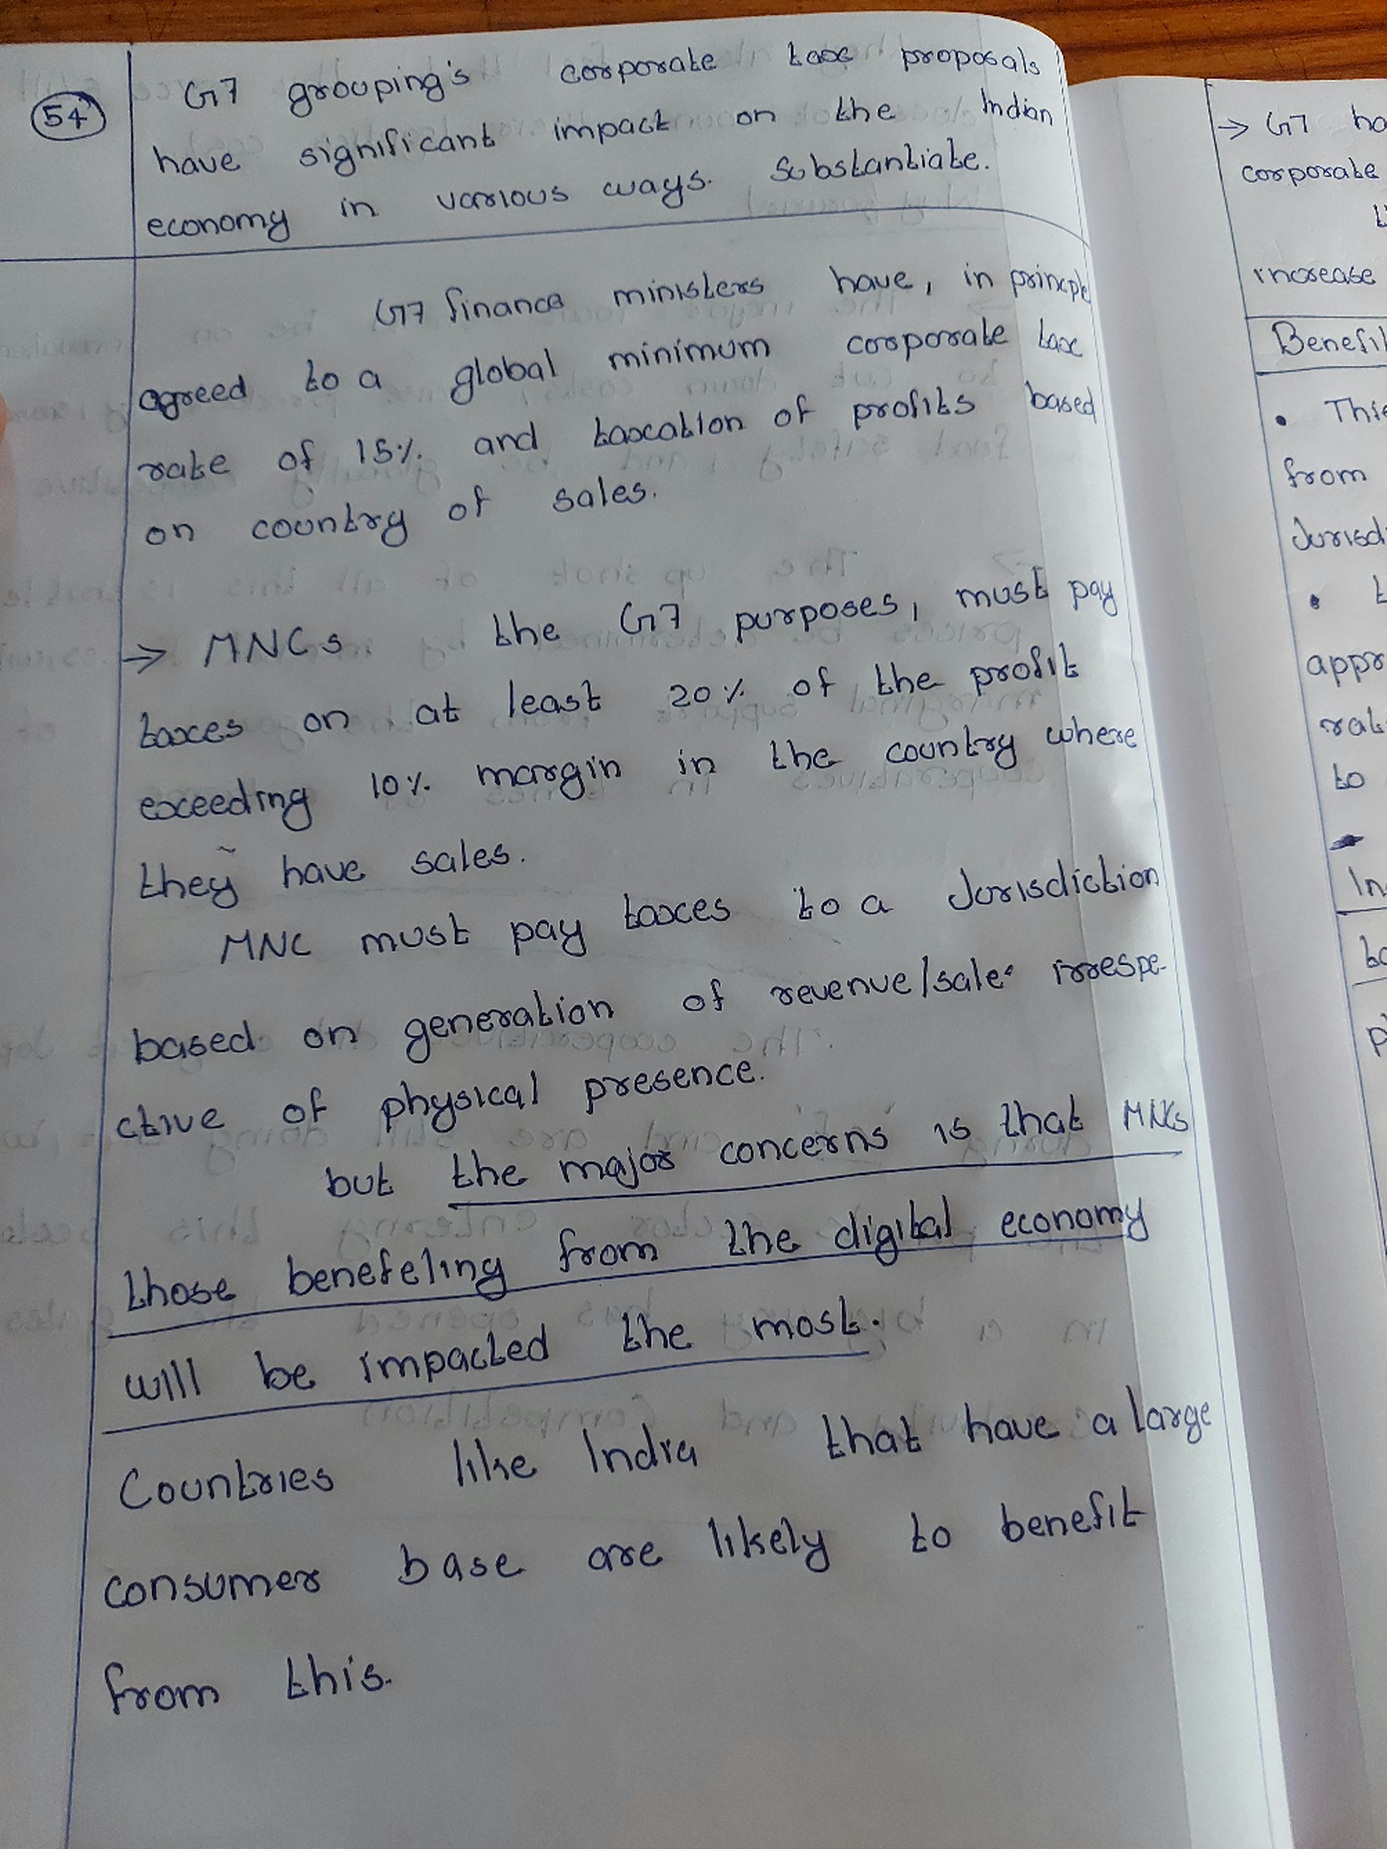 54
G7 grouping's corporate tax proposals
have significant impact on the Indian
economy in various ways. Substantiate.
G7 finance ministers have, in principle
agreed to a global minimum corporate tax
rate of 15% and taxation of profits based
on country of sales.
→ MNCs the G7 purposes, must pay
taxes on at least 20% of the profit
exceeding 10% margin in the country where
they have sales.
MNC must pay taxes to a Jurisdiction
based on generation of revenue/sales irrespe-
ctive of physical presence.
but the major concerns is that MNCs
those benefeting from the digital economy
will be impacted the most.
Countries like India that have a large
consumer base are likely to benefit
from this.
→ G7 ha
corporate
increase
Benefit
• This
from
Jurisdi
• t
appr
rat
to
In
ta
p